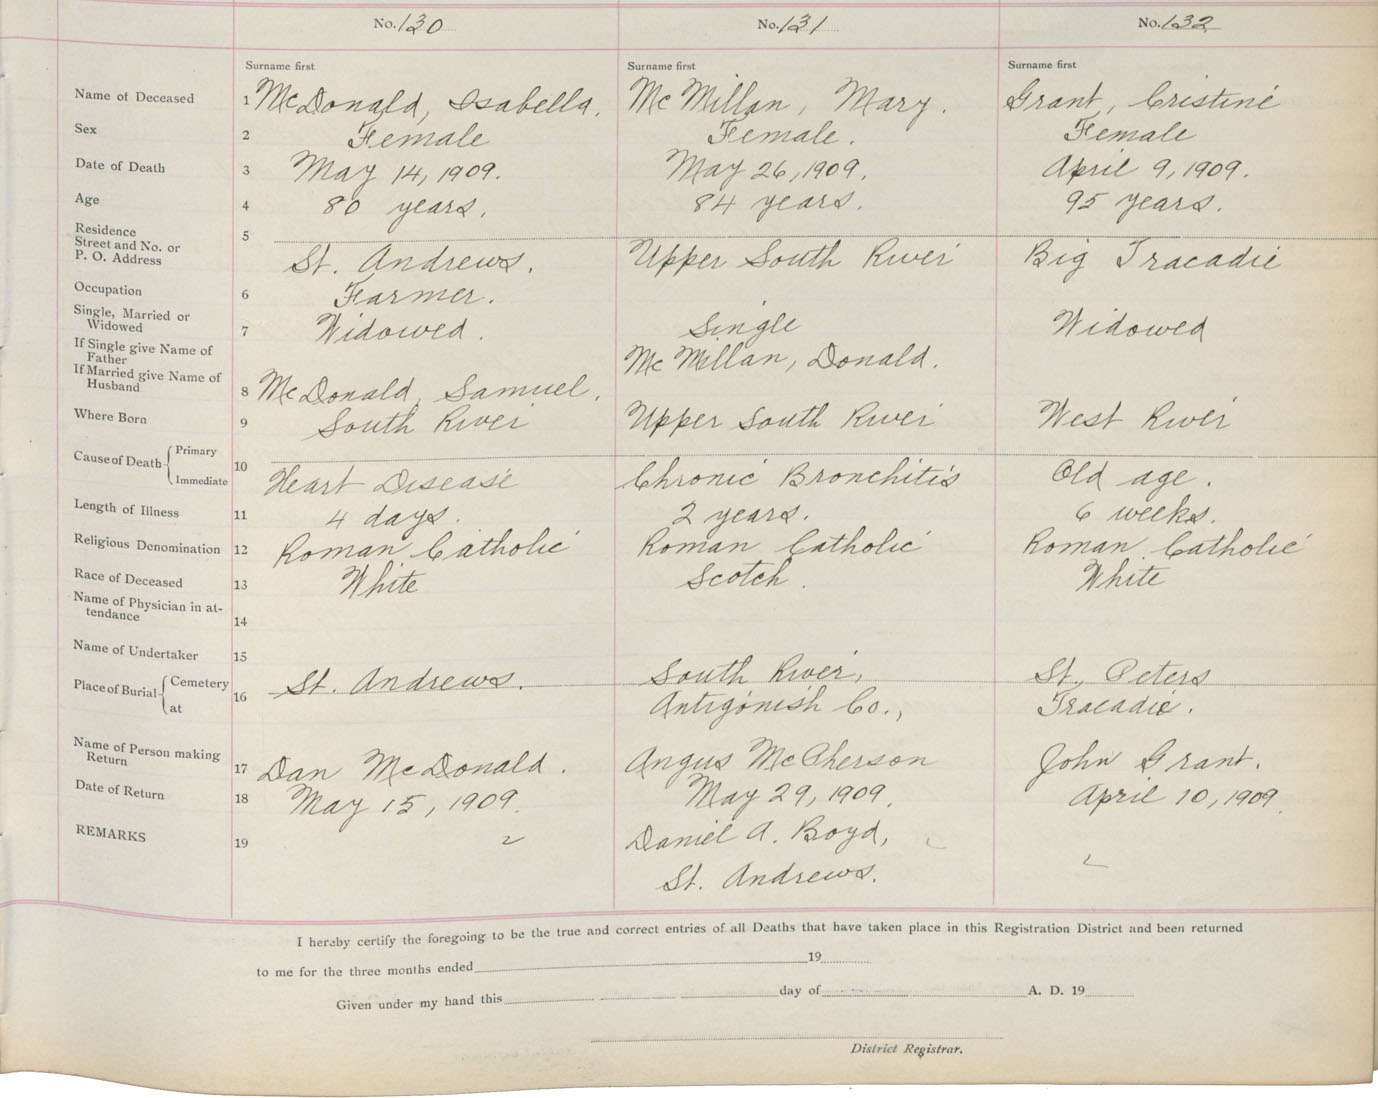 No. 130 No. 131 No. 132
Surname first Surname first Surname first
Name of Deceased 1 McDonald, Isabella. McMillan, Mary. Grant, Cristine
Sex 2 Female Female. Female
Date of Death 3 May 14, 1909. May 26, 1909. April 9, 1909.
Age 4 80 years. 84 years. 95 years.
Residence 5
Street and No. or
P. O. Address St. Andrews. Upper South River Big Tracadie
Occupation 6 Farmer.
Single, Married or
Widowed 7 Widowed. Single Widowed
If Single give Name of
Father McMillan, Donald.
If Married give Name of
Husband 8 McDonald, Samuel.
Where Born 9 South River Upper South River West River
Cause of Death Primary
Immediate 10 Heart Disease Chronic Bronchitis Old age.
Length of Illness 11 4 days. 2 years. 6 weeks.
Religious Denomination 12 Roman Catholic Roman Catholic Roman Catholic
Race of Deceased 13 White Scotch. White
Name of Physician in at-
tendance 14
Name of Undertaker 15
Place of Burial Cemetery St. Andrews. South River, St. Peters
at 16 Antigonish Co., Tracadie.
Name of Person making
Return 17 Dan McDonald. Angus McPherson John Grant.
Date of Return 18 May 15, 1909. May 29, 1909. April 10, 1909.
REMARKS 19 Daniel A. Boyd,
St. Andrews.
I hereby certify the foregoing to be the true and correct entries of all Deaths that have taken place in this Registration District and been returned
to me for the three months ended 19
Given under my hand this day of A. D. 19
District Registrar.